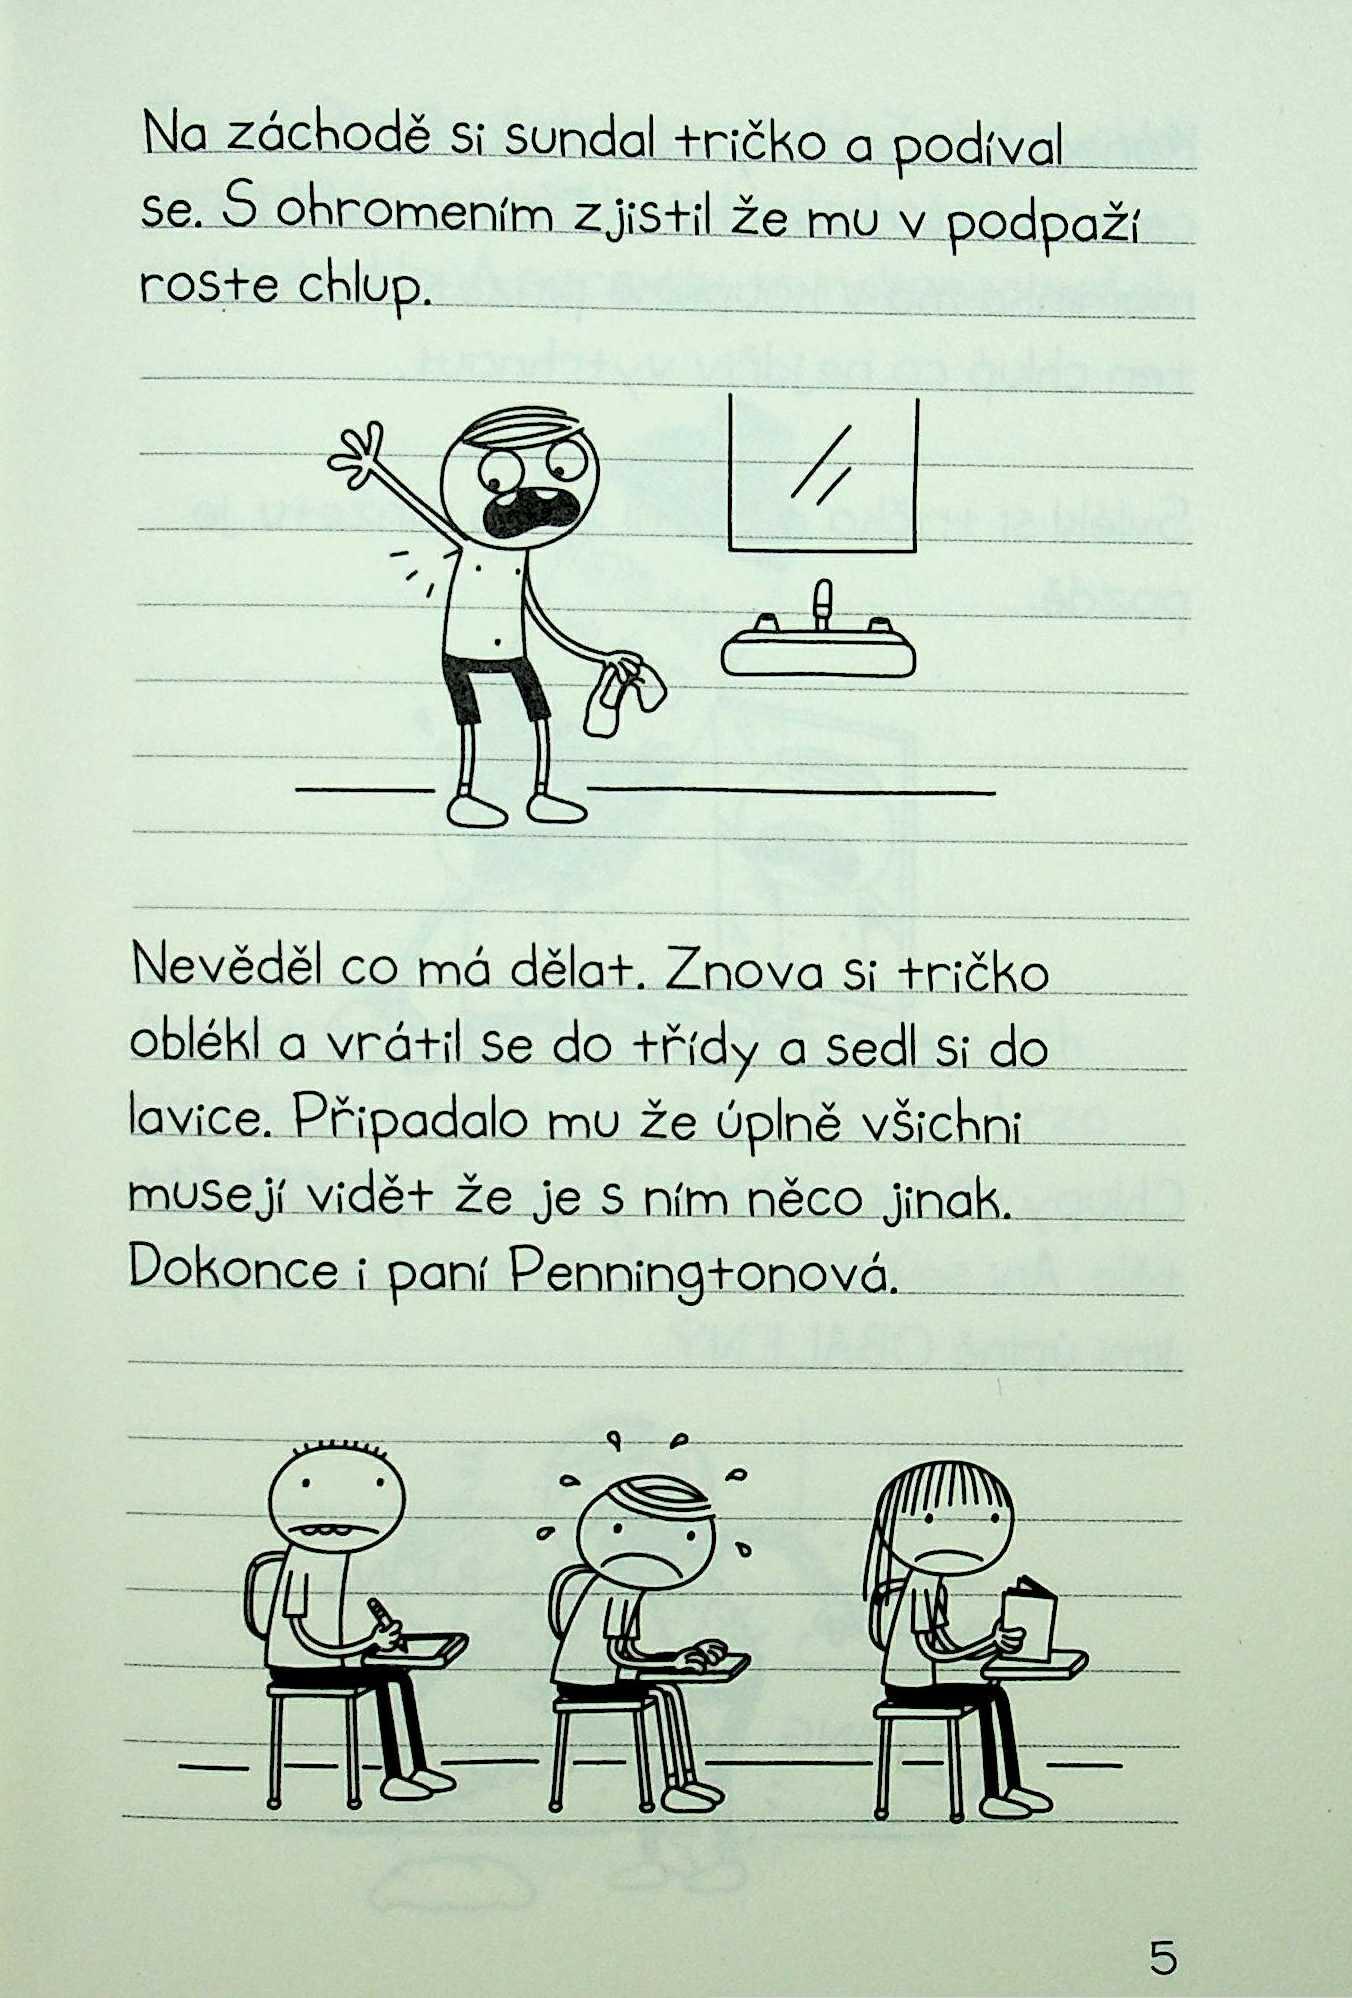 Na záchodě si sundal tričko a podíval
se. S ohromením zjistil že mu v podpaží
roste chlup.
Nevěděl co má dělat. Znova si tričko
oblékl a vrátil se do třídy a sedl si do
lavice. Připadalo mu že úplně všichni
musejí vidět že je s ním něco jinak.
Dokonce i paní Penningtonová.
5